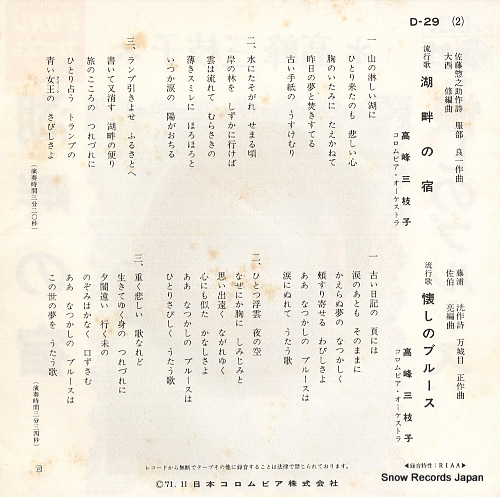 D-29 (2)
佐藤惣之助作詩 服部 良一作曲
大西 修編曲
流行歌 湖畔の宿
高峰三枝子
コロムビア・オーケストラ
一、山の淋しい湖に
ひとり来たのも 悲しい心
胸のいたみに たえかねて
昨日の夢と焚きすてる
古い手紙の うすけむり
二、水にたそがれ せまる頃
岸の林を しずかに行けば
雲は流れて むらさきの
薄きスミレに ほろほろと
いつか涙の 陽がおちる
三、ランプ引きよせ ふるさとへ
書いて又消す 湖畔の便り
旅のこころの つれづれに
ひとり占う トランプの
青い女王の さびしさよ
(演奏時間三分二〇秒)
藤浦 洸作詩 万城目 正作曲
佐伯 亮編曲
流行歌 懐しのブルース
高峰三枝子
コロムビア・オーケストラ
一、古い日記の 頁には
涙のあとも そのままに
かえらぬ夢の なつかしく
頬すり寄せる わびしさよ
ああ なつかしの ブルースは
涙にぬれて うたう歌
二、ひとつ浮雲 夜の空
なぜにか胸に しみじみと
思い出遠く ながれゆく
心にも似た かなしさよ
ああ なつかしの ブルースは
ひとりさびしく うたう歌
三、重く悲しい 歌なれど
生きてゆく身の つれづれに
夕闇遠い 行く末の
のぞみはかなく 口ずさむ
ああ なつかしの ブルースは
この世の夢を うたう歌
(演奏時間三分三四秒)
レコードから無断でテープその他に録音することは法律で禁じられております。
◀録音特性:RIAA▶
©'71.11 日本コロムビア株式会社
Snow Records Japan.com